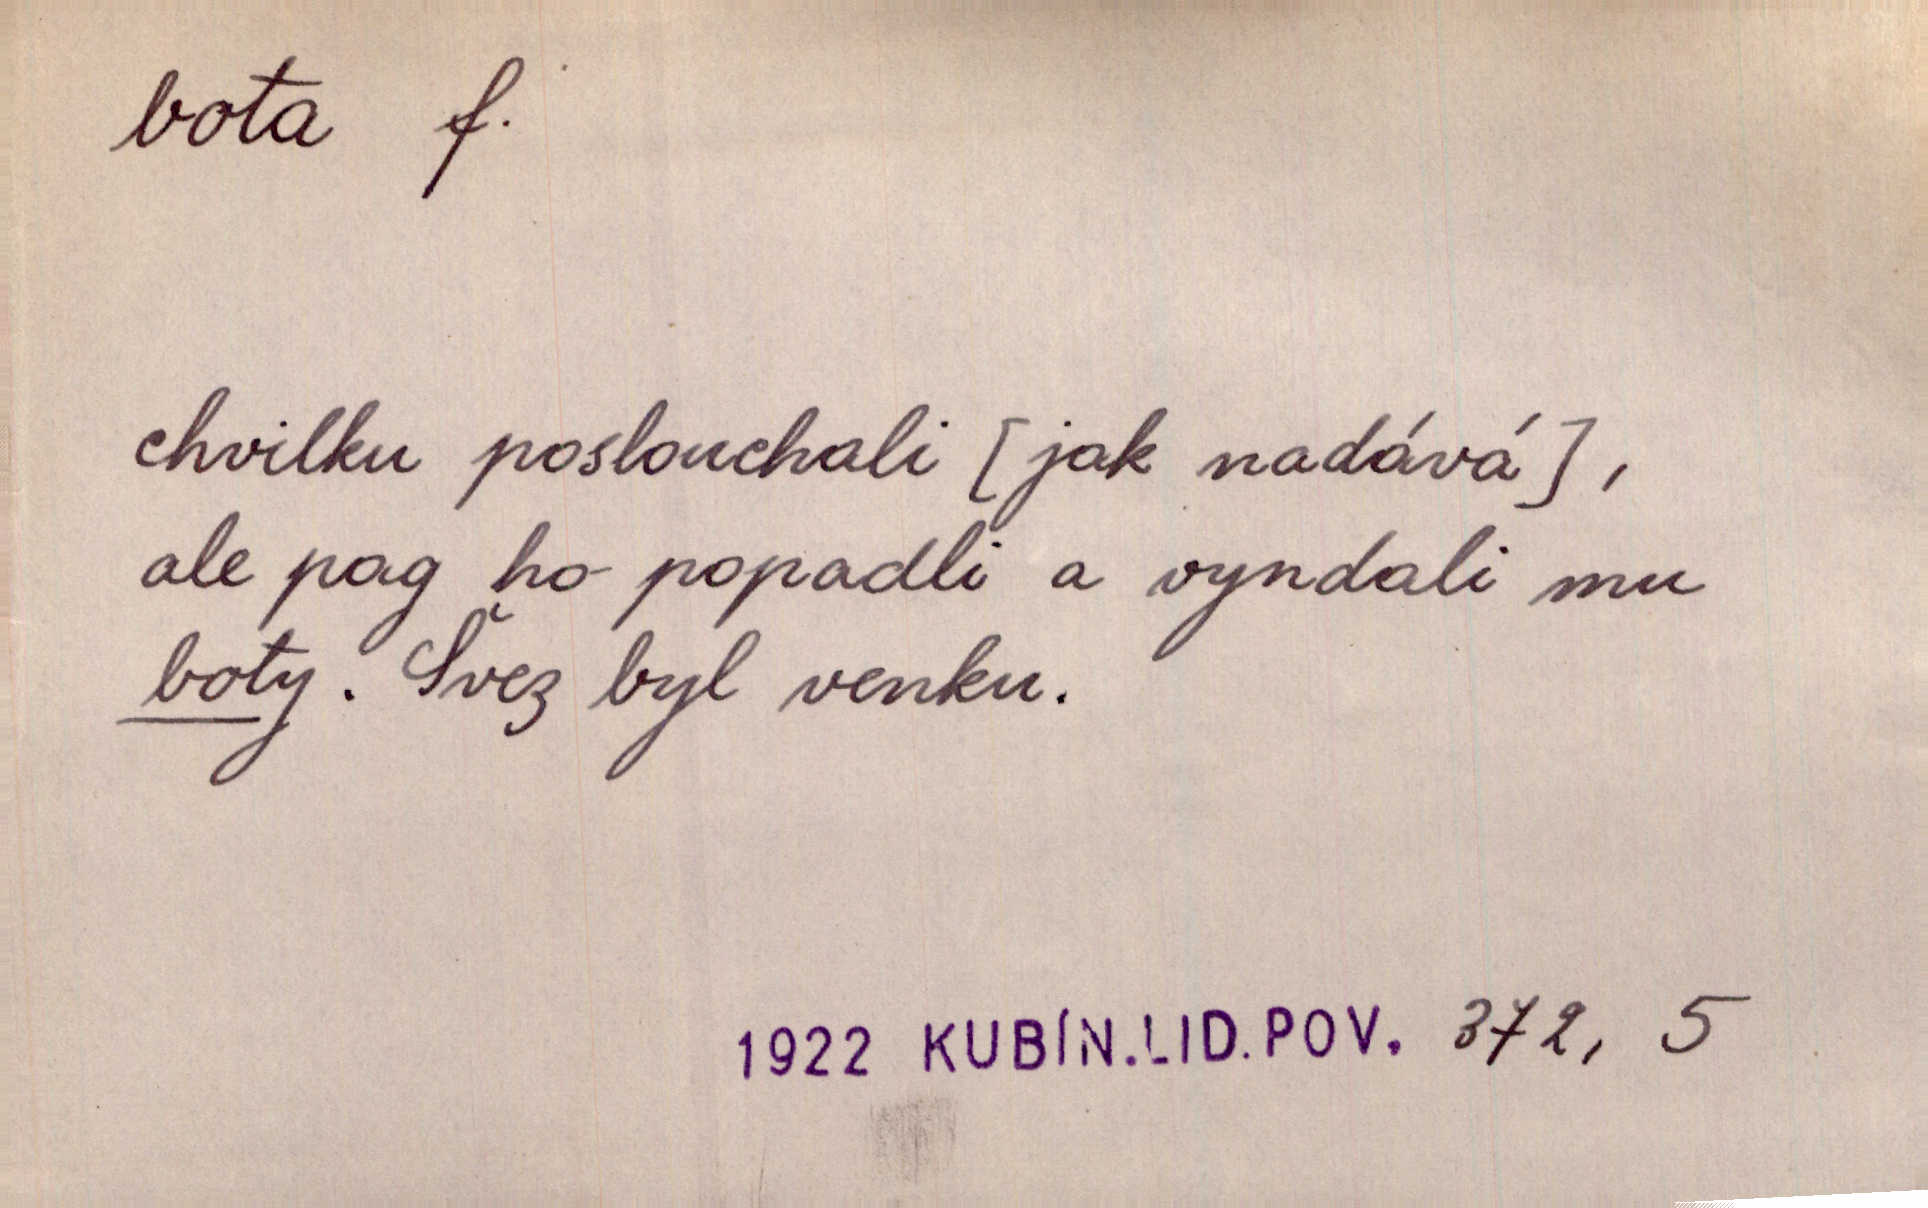 bota f.
chvilku poslouchali [jak nadává],
ale pag ho popadli a vyndali mu
boty. Švez byl venku.
1922 KUBÍN.LID.POV. 372, 5